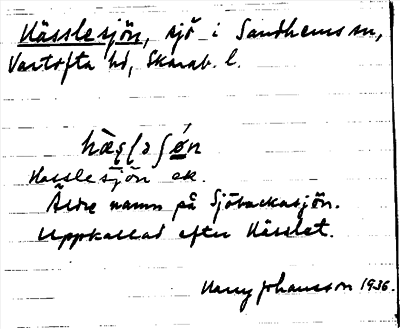 Hässlesjön, sjö i Sandhems sn,
Vartofta hd, Skarab. l.
hæs̨lə ʃǿn
Hasslesjön ek.
Äldre namn på Sjöbackasjön.
Uppkallad efter Hässlet.
Harry Johansson 1936.